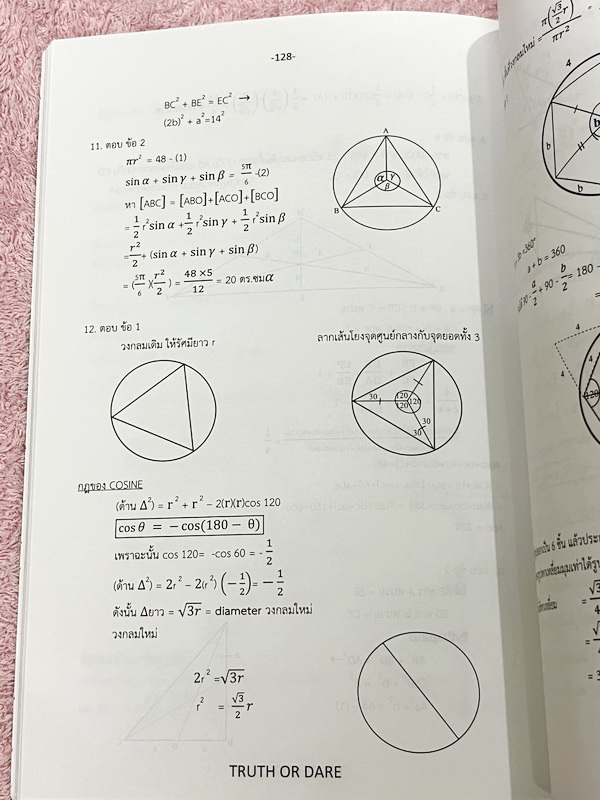 -128-
BC² + BE² = EC² →
(2b)² + a²=14²
11. ตอบ ข้อ 2
πr² = 48 - (1)
sin α + sin γ + sin β = 5π/6 -(2)
หา [ABC] = [ABO]+[ACO]+[BCO]
= 1/2 r²sin α + 1/2 r²sin γ + 1/2 r²sin β
= r²/2 + (sin α + sin γ + sin β)
= (5π/6)(r²/2) = 48 ×5/12 = 20 ตร.ซมα
A
α γ
β
B C
12. ตอบ ข้อ 1
วงกลมเดิม ให้รัศมียาว r
ลากเส้นโยงจุดศูนย์กลางกับจุดยอดทั้ง 3
30 120
120 120
30
30
กฎของ COSINE
(ด้าน Δ²) = r² + r² − 2(r)(r)cos 120
cos θ = −cos(180 − θ)
เพราะฉะนั้น cos 120= -cos 60 = - 1/2
(ด้าน Δ²) = 2r² − 2(r²) (−1/2)= − 1/2
ดังนั้น Δยาว = √3r = diameter วงกลมใหม่
วงกลมใหม่
2r² =√3r
r² = √3/2 r
TRUTH OR DARE
π(√3/2 r)² =
πr²
4
b
b
a + b = 360
90 - a/2 + 90 - b/2 = 180 −
4
4
120